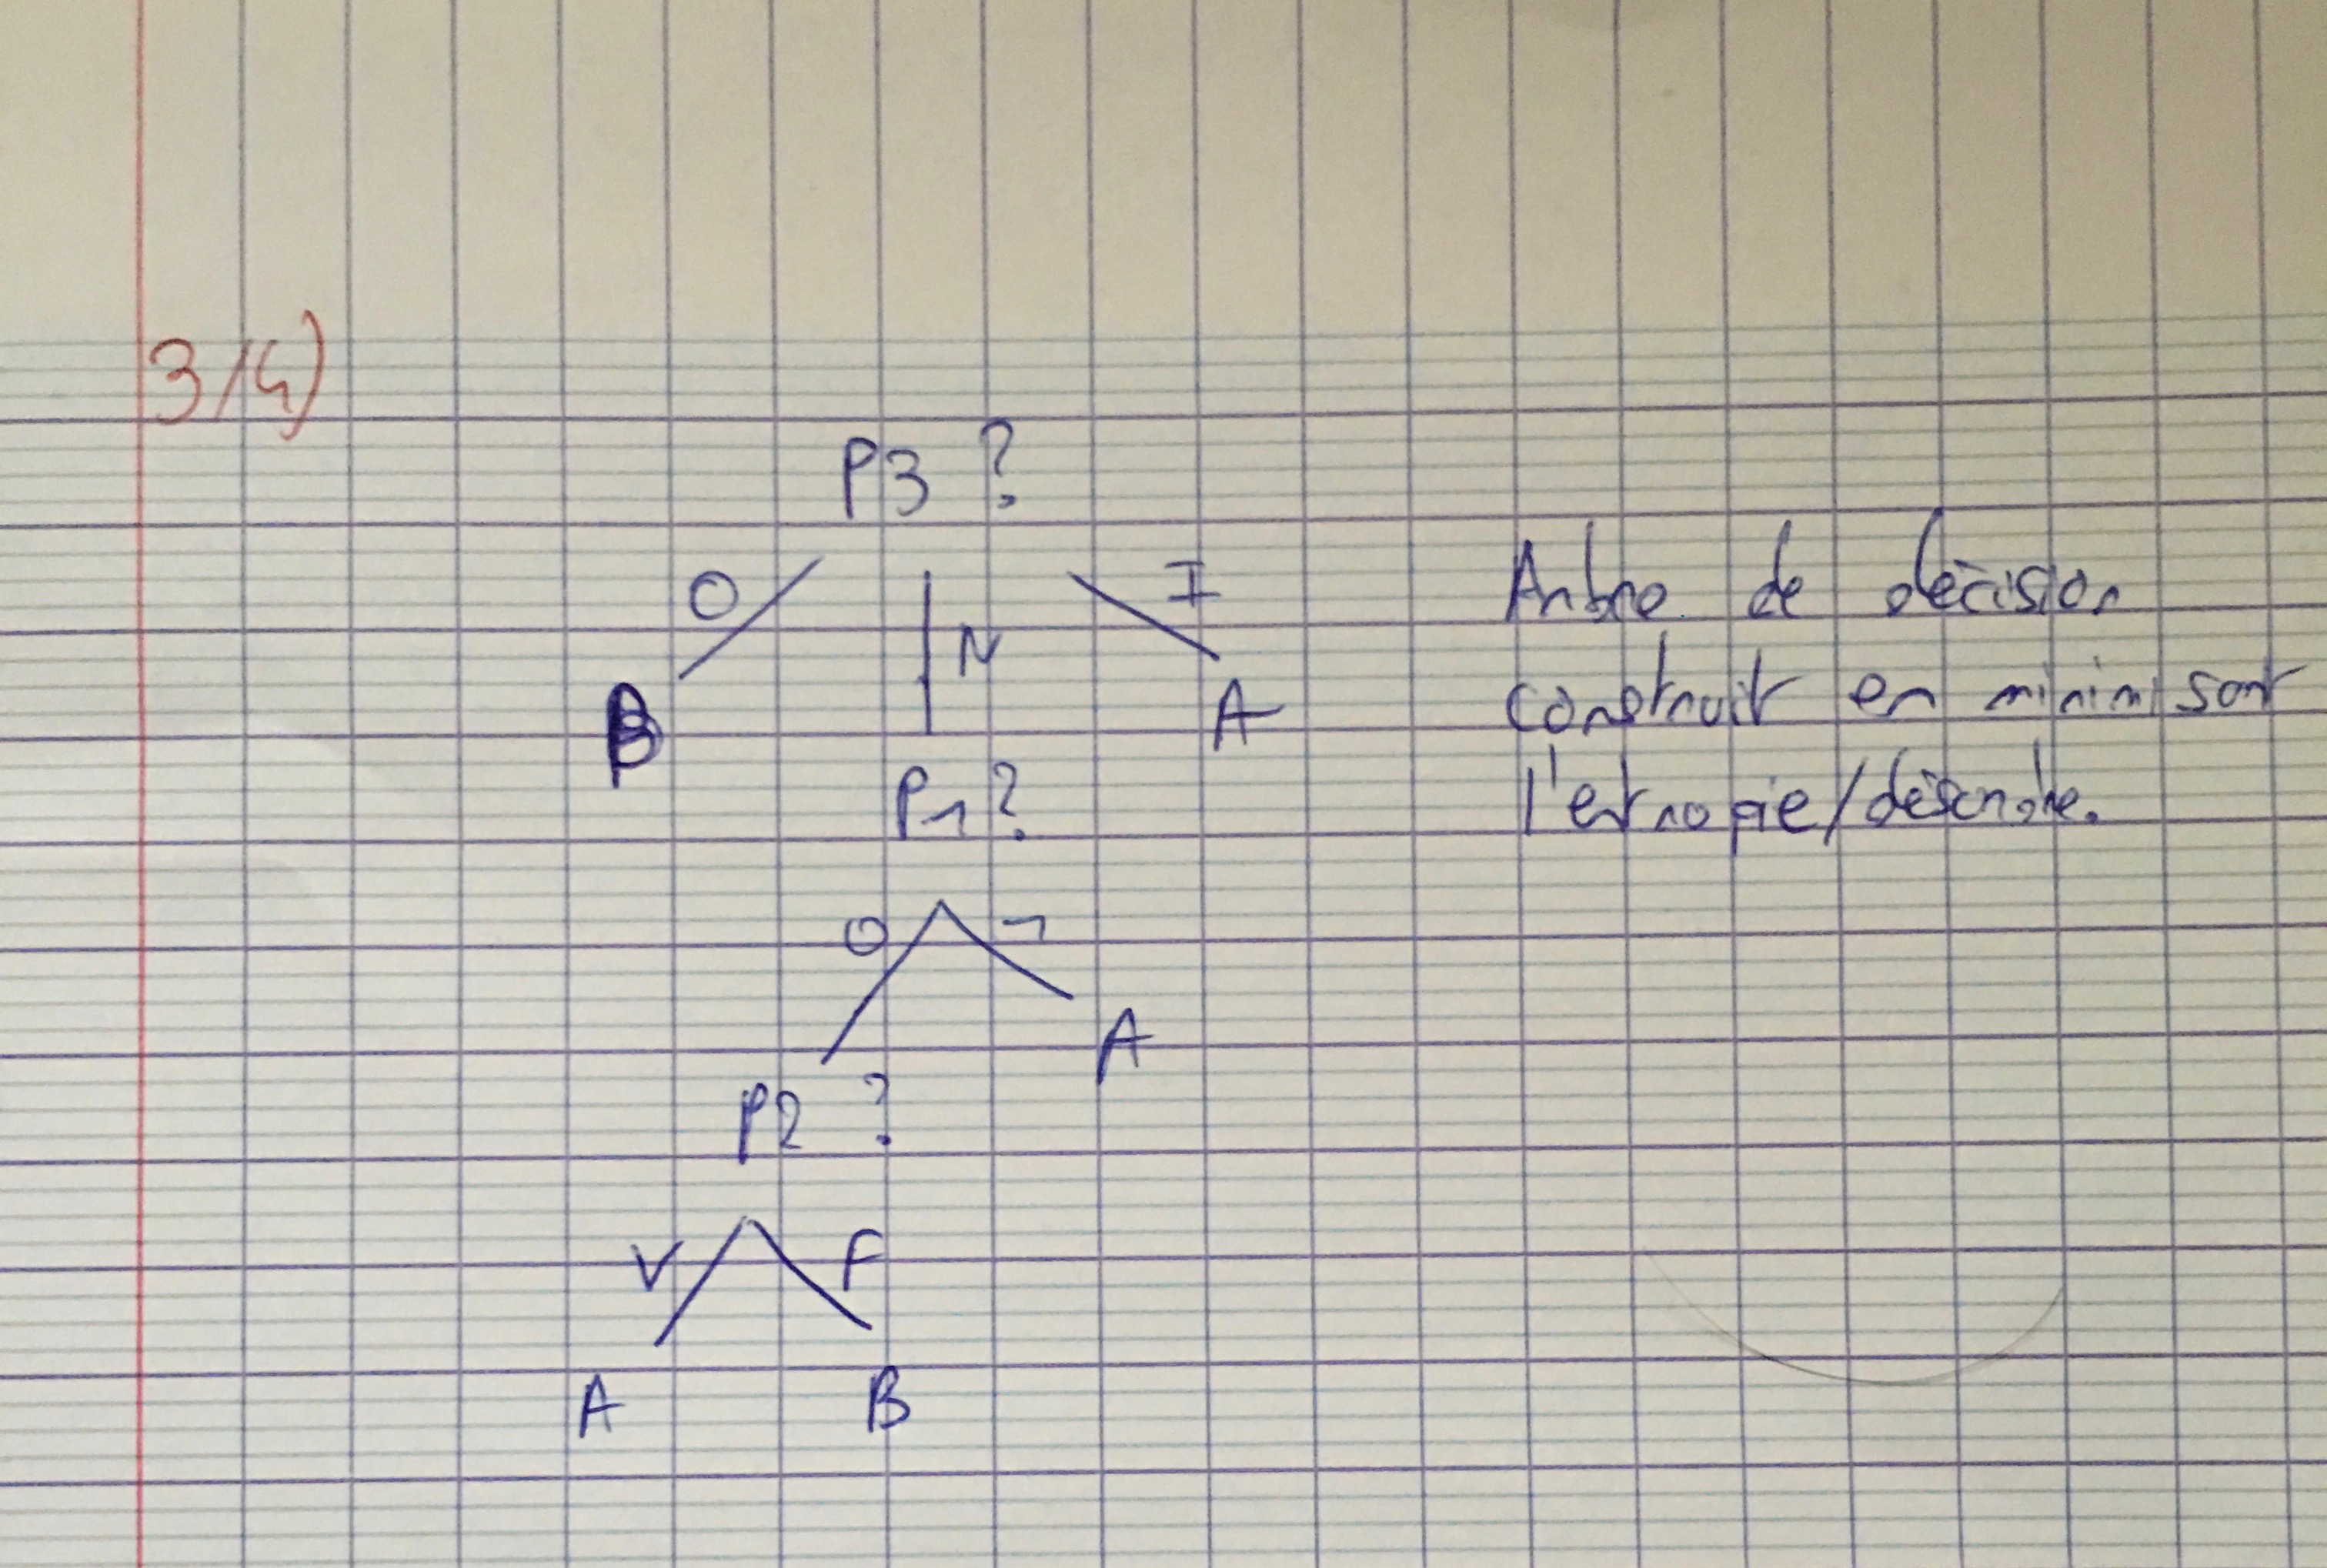 3/4)
P3 ?
O N I
B A
P1 ?
O 1
P2 ? A
V F
A B
Arbre de décision
construit en minimisant
l'entropie/désordre.